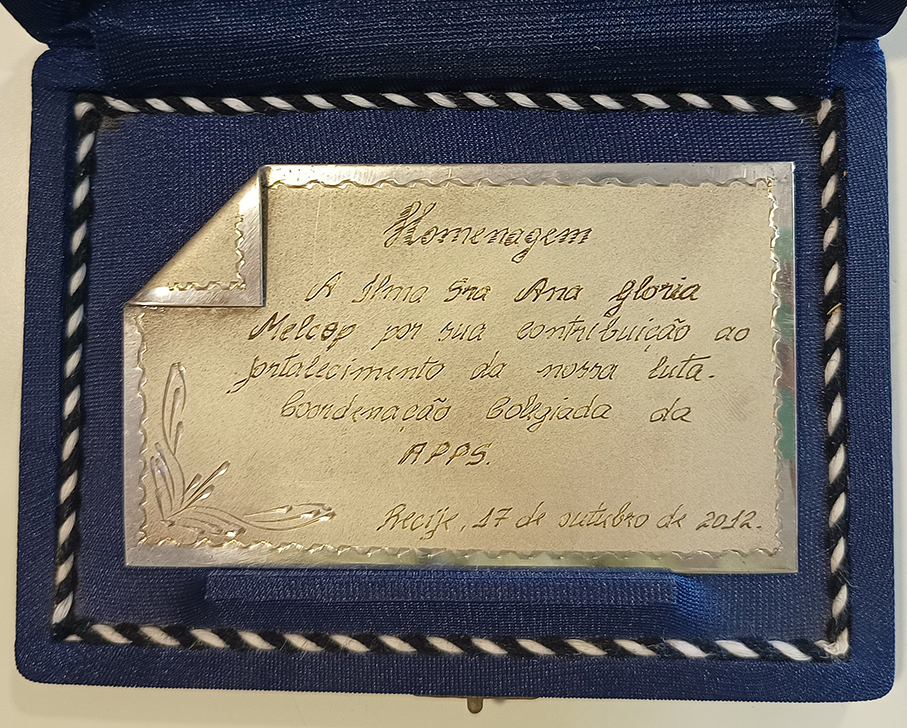 Homenagem
A Ilma Sra Ana Gloria
Melcop por sua contribuição ao
fortalecimento da nossa luta.
Coordenação Colegiada da
APPS.
Recife, 17 de outubro de 2012.